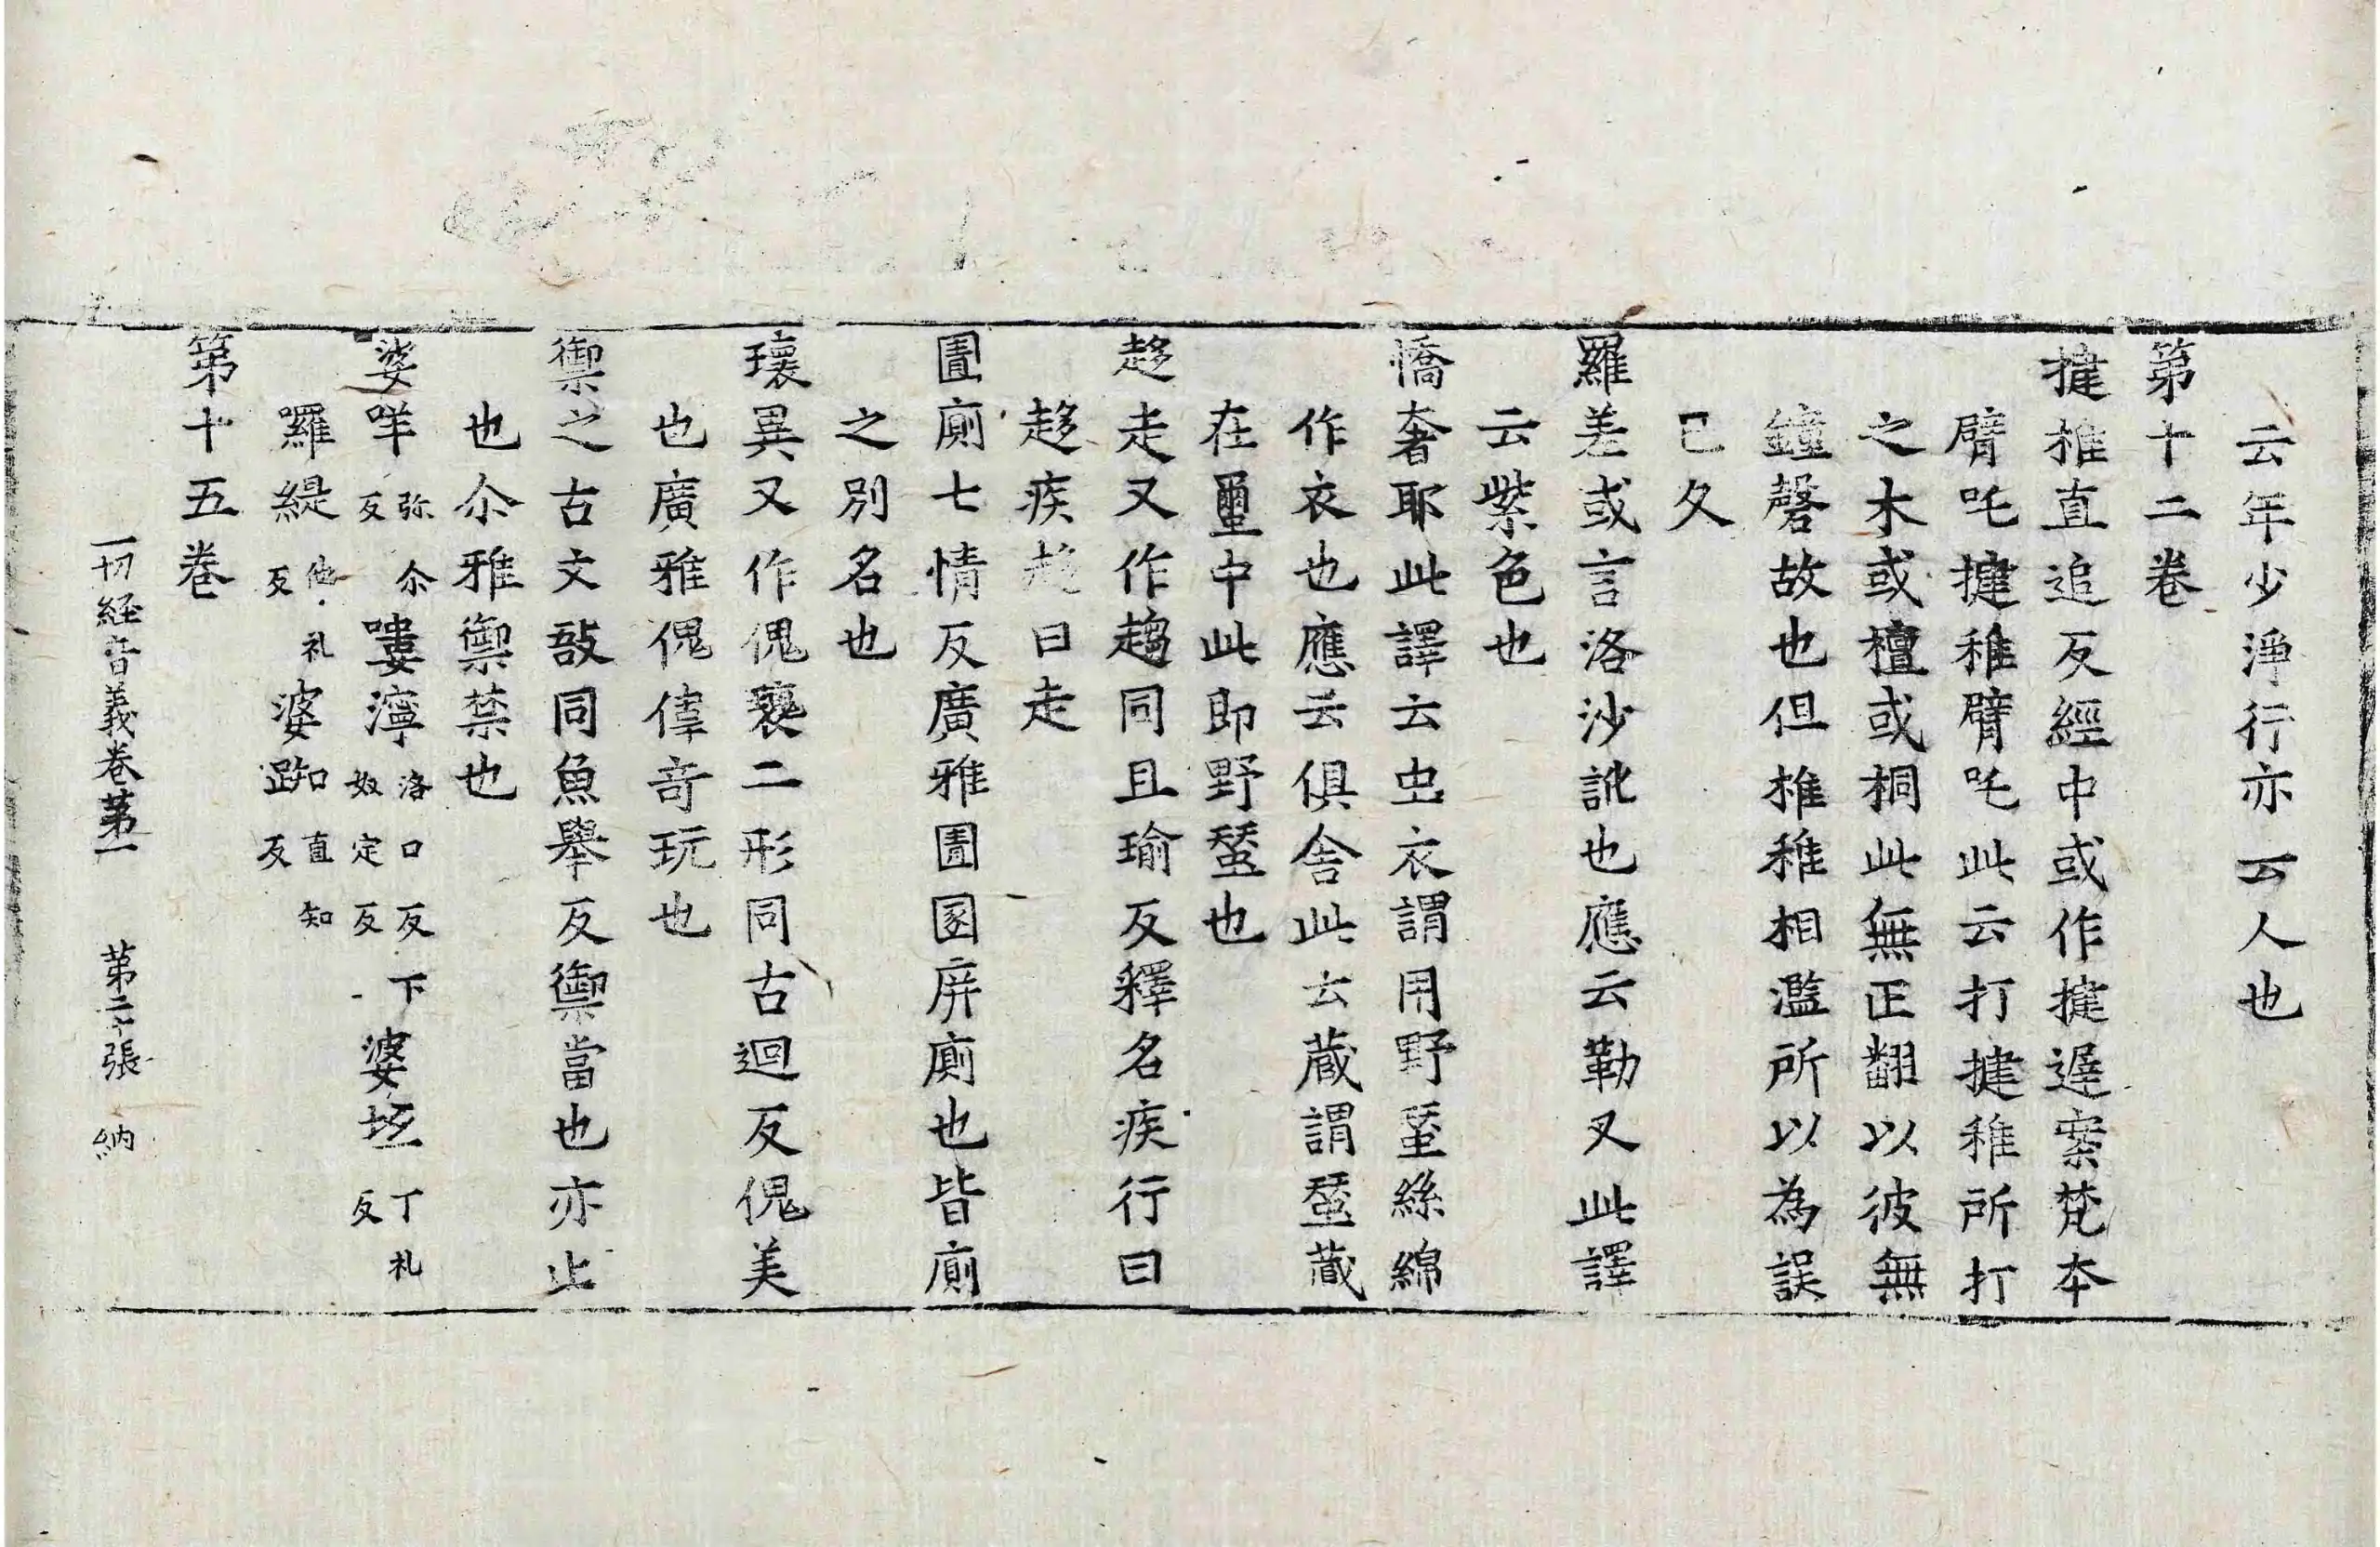 云年少淨行亦云人也
第十二卷
揵椎直追反經中或作揵遟案梵本
臂吒揵稚臂吒此云打揵稚所打
之木或檀或桐此無正翻以彼無
鐘磬故也但椎稚相濫所以為誤
已久
羅差或言洛沙訛也應云勒叉此譯
云紫色也
憍奢耶此譯云虫衣謂用野蚕絲綿
作衣也應云俱舍此云藏謂蚕藏
在蠒中此即野蚕也
趍走又作趨同且瑜反釋名疾行曰
趍疾趍曰走
圊廁七情反廣雅圊圂庰廁也皆廁
之別名也
瓌異又作傀褱二形同古迴反傀美
也廣雅傀偉奇玩也
禦之古文敔同魚舉反禦當也亦止
也尒雅禦禁也
婆咩弥尒反嘍濘洛口反下奴定反婆坻丁礼反
囉緹他礼反婆踟直知反
第十五卷
一切経音義卷第一 第二十張 納